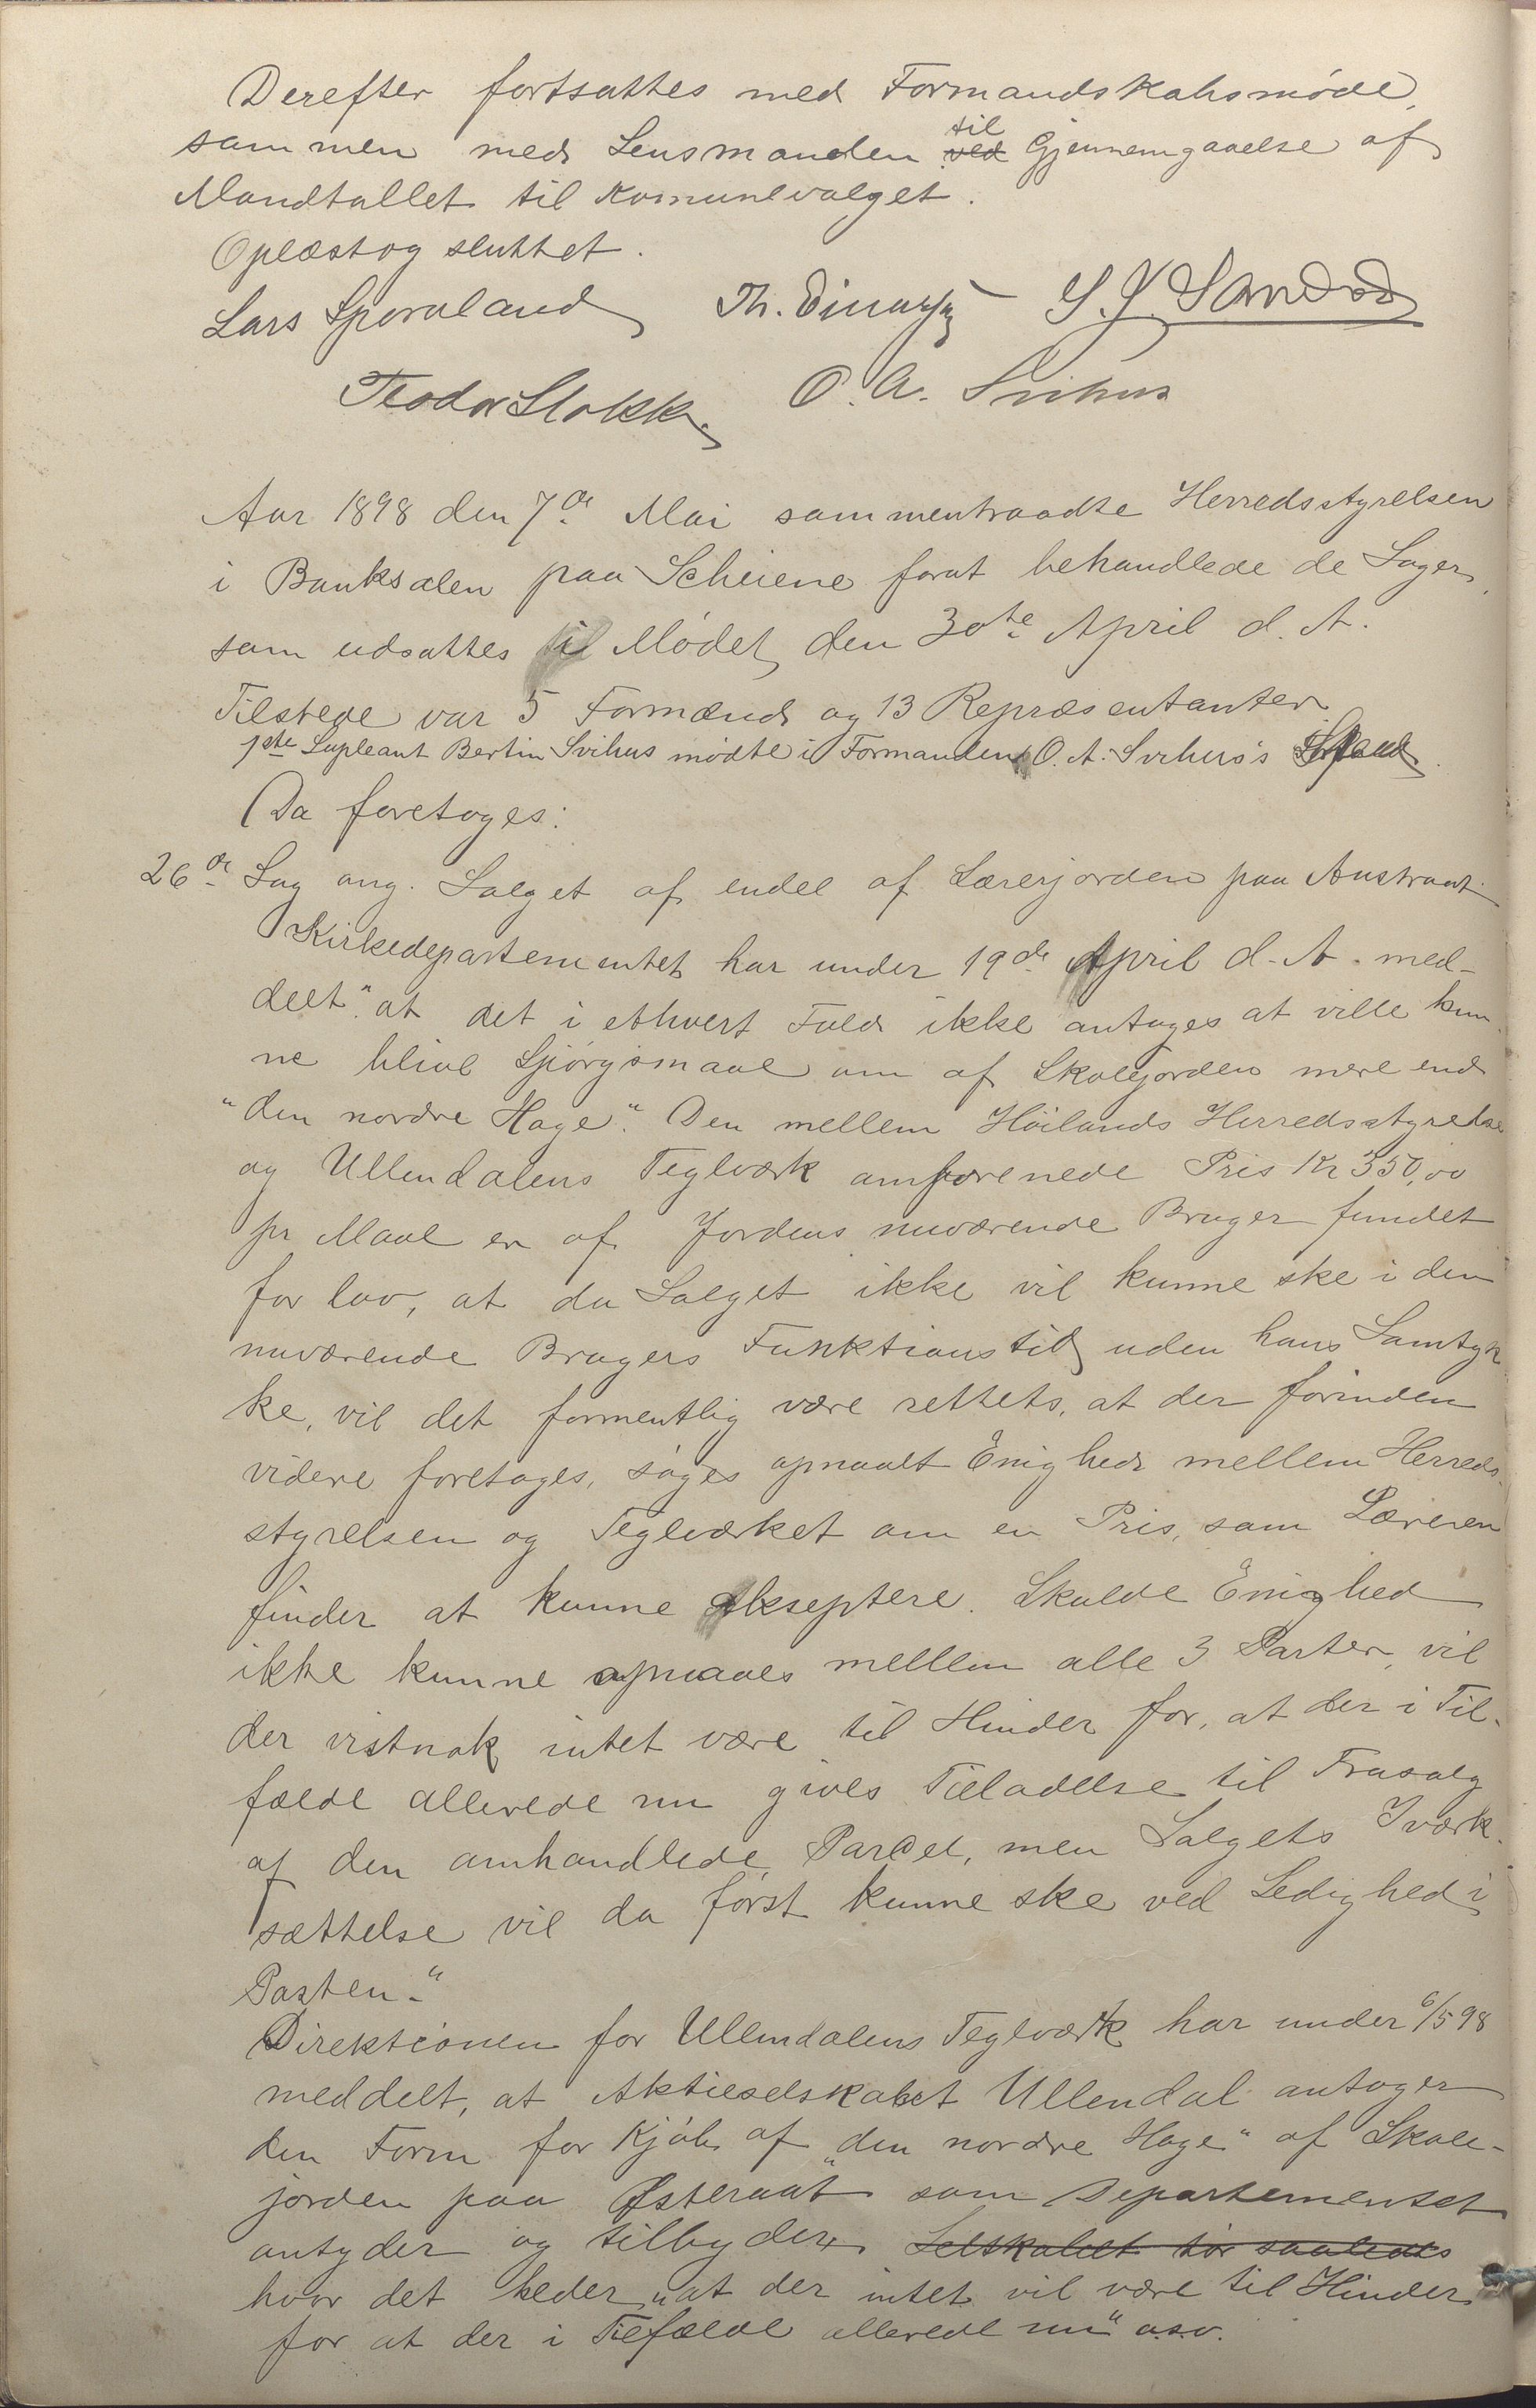 Derefter fortsattes med Formandskabsmøde,
sammen med Lensmanden ved til Gjennemgaaelse af
Mandtallet til Komunevalget.
Oplæst og sluttet.
Lars Sporaland Th. Einarsen S. J. Sandvo
Teodor Stokke O. A. Svihus
Aar 1898 den 7de Mai sammentraadte Herredsstyrelsen
i Banksalen paa Scheiene forat behandlede de Sager,
som udsattes til Mødet den 30te April d. A.
Tilstede var 5 Formænd og 13 Repræsentanter
1ste Supleant Bertin Svihus mødte i Formanden O. A. Svihus's Forfald.
Da foretoges:
26de Sag ang. Salget af endel af Lærerjorden paa Austraat
Kirkedepartementet har under 19de April d. A. med-
delt "at det i ethvert Fald ikke antages at ville kun-
ne blive Spørgsmaal om af Skolejorden mere end
"den nordre Hage". Den mellem Høilands Herredsstyrelse
og Ullendalens Teglværk omforenede Pris Kr 350,00
pr Maal er af Jordens nuværende Bruger fundet
for lav, at da Salget ikke vil kunne ske i den
nuværende Brugers Funktionstid uden hans Samtyk
ke, vil det formentlig være rettets, at der forinden
videre foretages, søges opnaaet Enighed mellem Herreds-
styrelsen og Teglværket om en Pris, som Læreren
finder at kunne akseptere. Skulde Enighed
ikke kunne opnaaes mellem alle 3 Parter, vil
der vistnok intet være til Hinder for, at der i Til-
fælde allerede nu gives Tilladelse til Frasalg
af den omhandlede Parcel, men Salgets Iværk-
sættelse vil da først kunne ske ved Ledighed i
Posten."
Direktionen for Ullendalens Teglværk har under 6/5 98
meddelt, at Aktieselskabet Ullendal antager
den Form for Kjøb af "den nordre Hage" af Skole-
jorden paa Østeraat som Departementet
antyder og tilbyder, Selskabet tør saaledes
hvor det heder "at der intet vil være til Hinder
for at der i Tilfælde allerede nu" o.s.v.